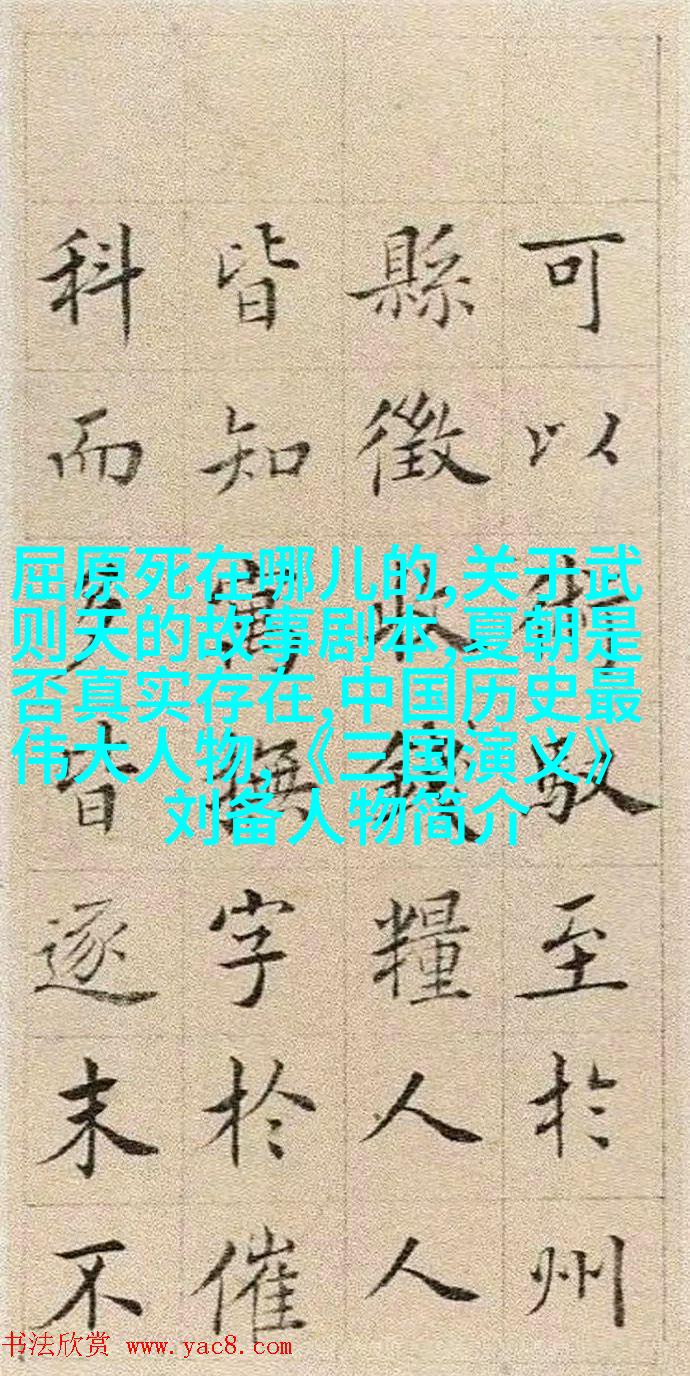 可以馭至於州
縣徵收錢糧人人
皆知寓撫字於催
科而皆逐末不
屈原死在哪儿的,关于武
则天的故事剧本,夏朝是
否真实存在,中国历史最
伟大人物,《三国演义》
刘备人物简介
书法欣赏 www.yac8.com